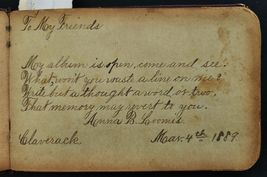 To My Friends
My album is open, come and see:
What, won't you waste a line on me?
Write but a thought a word or two,
That memory may revert to you.
Anna B. Loomis
Claverack Mar. 4th 1889